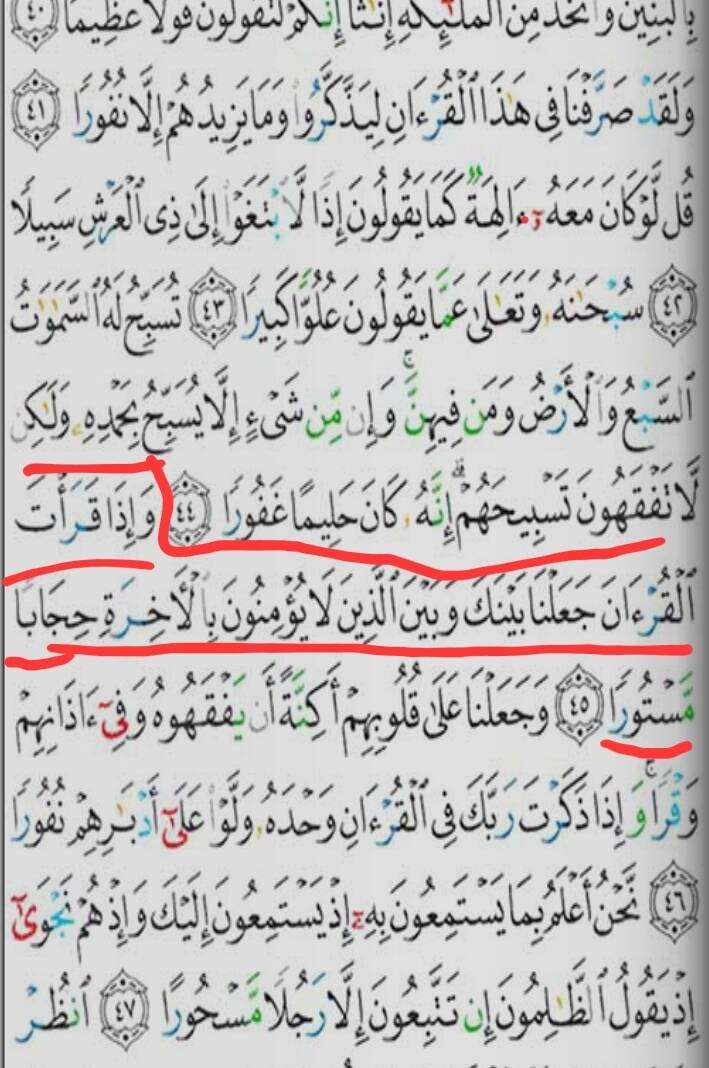 بِالْبَنِينَ وَاتَّخَذَ مِنَ الْمَلَٰٓئِكَةِ إِنَٰثًا إِنَّكُمْ لَتَقُولُونَ قَوْلًا عَظِيمًا ٤٠
وَلَقَدْ صَرَّفْنَا فِى هَٰذَا ٱلْقُرْءَانِ لِيَذَّكَّرُوا۟ وَمَا يَزِيدُهُمْ إِلَّا نُفُورًا ٤١
قُل لَّوْ كَانَ مَعَهُۥٓ ءَالِهَةٌ كَمَا يَقُولُونَ إِذًا لَّٱبْتَغَوْا۟ إِلَىٰ ذِى ٱلْعَرْشِ سَبِيلًا
٤٢ سُبْحَٰنَهُۥ وَتَعَٰلَىٰ عَمَّا يَقُولُونَ عُلُوًّا كَبِيرًا ٤٣ تُسَبِّحُ لَهُ ٱلسَّمَٰوَٰتُ
ٱلسَّبْعُ وَٱلْأَرْضُ وَمَن فِيهِنَّ ۚ وَإِن مِّن شَىْءٍ إِلَّا يُسَبِّحُ بِحَمْدِهِۦ وَلَٰكِن
لَّا تَفْقَهُونَ تَسْبِيحَهُمْ ۗ إِنَّهُۥ كَانَ حَلِيمًا غَفُورًا ٤٤ وَإِذَا قَرَأْتَ
ٱلْقُرْءَانَ جَعَلْنَا بَيْنَكَ وَبَيْنَ ٱلَّذِينَ لَا يُؤْمِنُونَ بِٱلْءَاخِرَةِ حِجَابًا
مَّسْتُورًا ٤٥ وَجَعَلْنَا عَلَىٰ قُلُوبِهِمْ أَكِنَّةً أَن يَفْقَهُوهُ وَفِىٓ ءَاذَانِهِمْ
وَقْرًا ۚ وَإِذَا ذَكَرْتَ رَبَّكَ فِى ٱلْقُرْءَانِ وَحْدَهُۥ وَلَّوْا۟ عَلَىٰٓ أَدْبَٰرِهِمْ نُفُورًا
٤٦ نَّحْنُ أَعْلَمُ بِمَا يَسْتَمِعُونَ بِهِۦٓ إِذْ يَسْتَمِعُونَ إِلَيْكَ وَإِذْ هُمْ نَجْوَىٰٓ
إِذْ يَقُولُ ٱلظَّٰلِمُونَ إِن تَتَّبِعُونَ إِلَّا رَجُلًا مَّسْحُورًا ٤٧ ٱنظُرْ